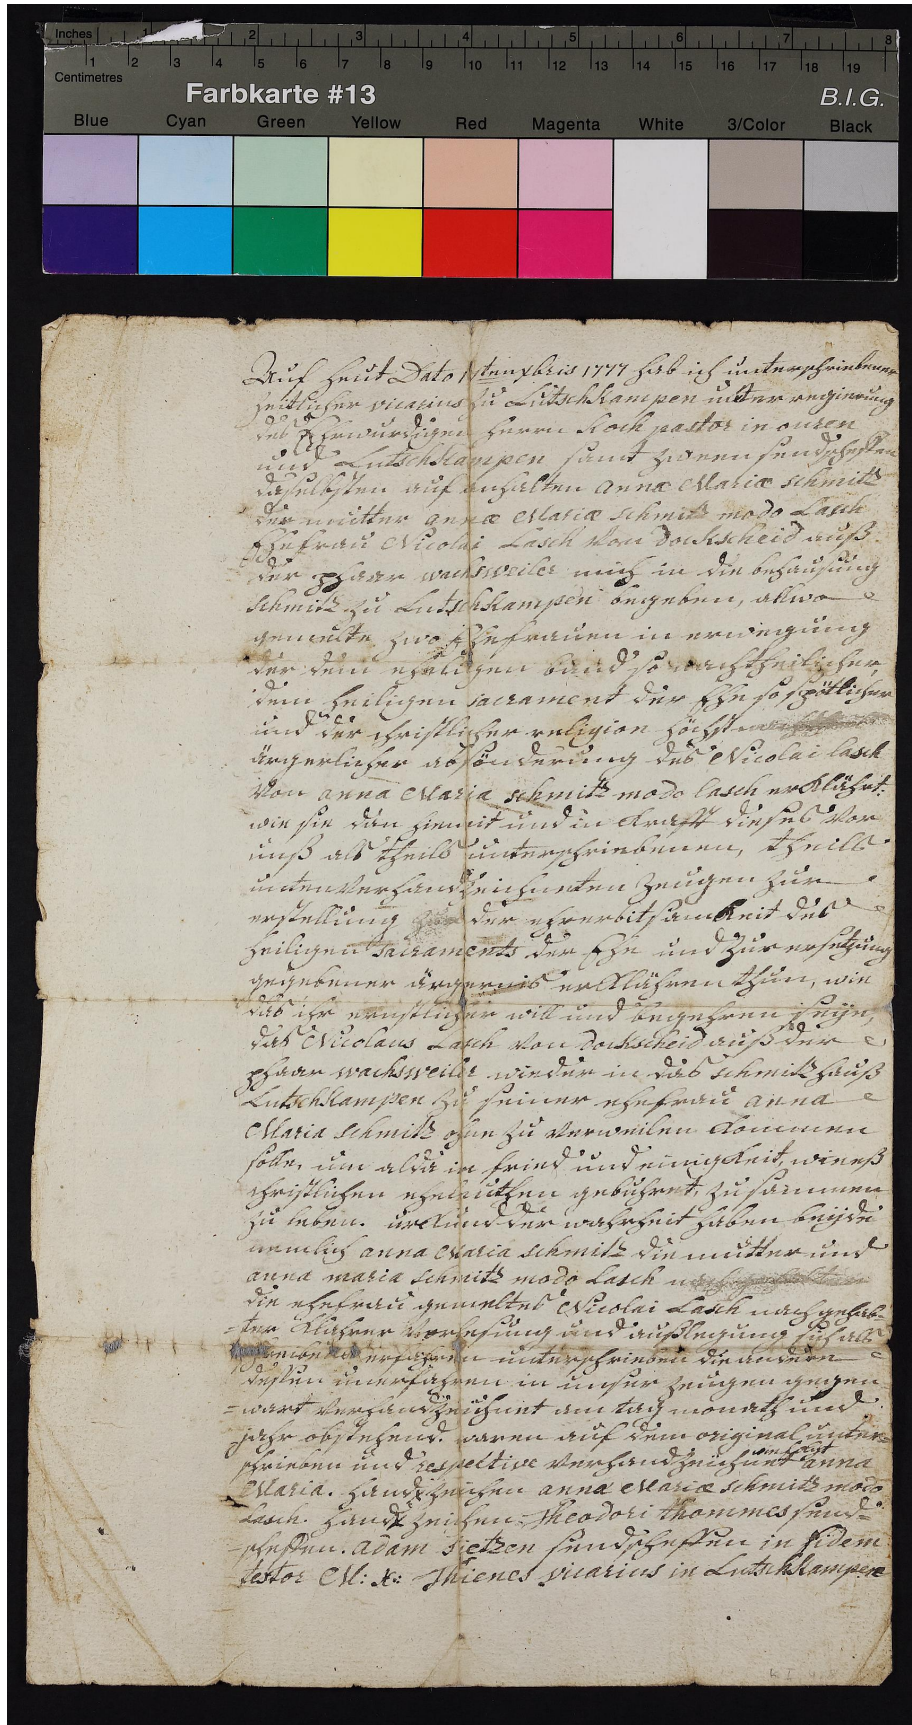 Inches 1 2 3 4 5 6 7 8
Centimetres 1 2 3 4 5 6 7 8 9 10 11 12 13 14 15 16 17 18 19
Farbkarte #13 B.I.G.
Blue Cyan Green Yellow Red Magenta White 3/Color Black
Auf heut Dato 1sten xbris 1777 hab ich unterschriebener
zeitlicher vicarius zu Lutschkampen unter regierung
des Ehrwürdigen herrn Koch pastor in ouren
und Lutschkampen samt zween sendscheffen
daselbsten auf anhalten Annæ Mariæ schmitz
der mutter annæ Mariæ schmitz modo Lasch
Ehefrau Nicolai Lasch von Dockscheid auß
der phaar wachsweiler mich in die behausung
schmitz zu Lutschkampen begeben, allwo
gemelte zwo Ehefrauen in erwegung
der dem eheligen band so nachtheilicher,
dem heiligen sacrament der Ehe so spötlicher
und der christlicher religion höchst
ärgerlicher absönderung des Nicolai Lasch
von anna Maria schmitz modo Lasch erklährt:
wie sie dan hiemit und in krafft dieses vor
unß als theils unterschriebenen, theils
unten verhandzeichneten zeugen zur
erstellung der ehrerbitsamkeit des
heiligen sacraments der Ehe und zur ersetzung
gegebener ärgernis erklähren thun, wie
das ihr ernstlicher will und begehren seye,
das Nicolaus Lasch von Dockscheid auß der
phaar wachsweiler wieder in das schmitz hauß
Lutschkampen zu seiner ehefrau anna
Maria schmitz ohne zu verweilen kommen
solle, um alda in fried und einigkeit, wie eß
christlichen eheleuthen gebühret, zusammen
zu leben. urkund der wahrheit haben beyde
nemlich anna Maria schmitz die mutter und
anna maria schmitz modo Lasch
die ehefrau gemeltes Nicolai Lasch nach gehab-
-ter klahrer vorlesung und außlegung sich als
erfahren unterschrieben die andere
dessen unerfahren in unser zeugen gegen-
-wart verhandzeichnet am tag monath und
jahr obstehend. waren auf dem original unter-
schrieben und respective verhandzeichnet anna
Maria. handzeichen annæ Mariæ schmitz modo
Lasch. handzeichen Theodori thommes send-
-scheffen. Adam Tietzen sendscheffen in fidem
testor M: X: Thienes vicarius in Lutschkampen